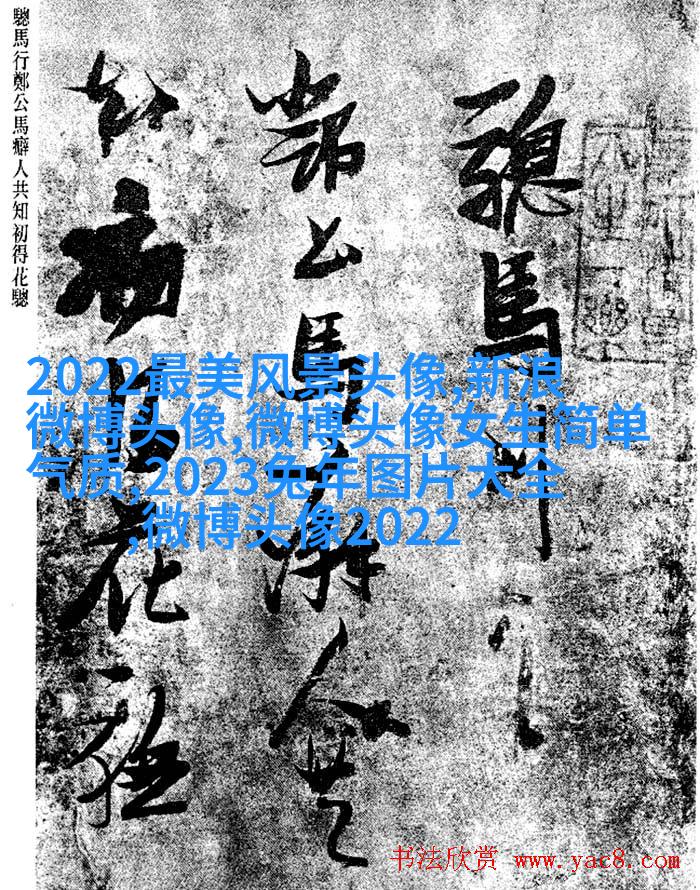 驄馬行
鄭公馬癖人共
知初得花驄
驄馬行鄭公馬癖人共知初得花驄
2022最美风景头像,新浪
微博头像,微博头像女生简单
气质,2023兔年图片大全
,微博头像2022
书法欣赏 www.yac8.com